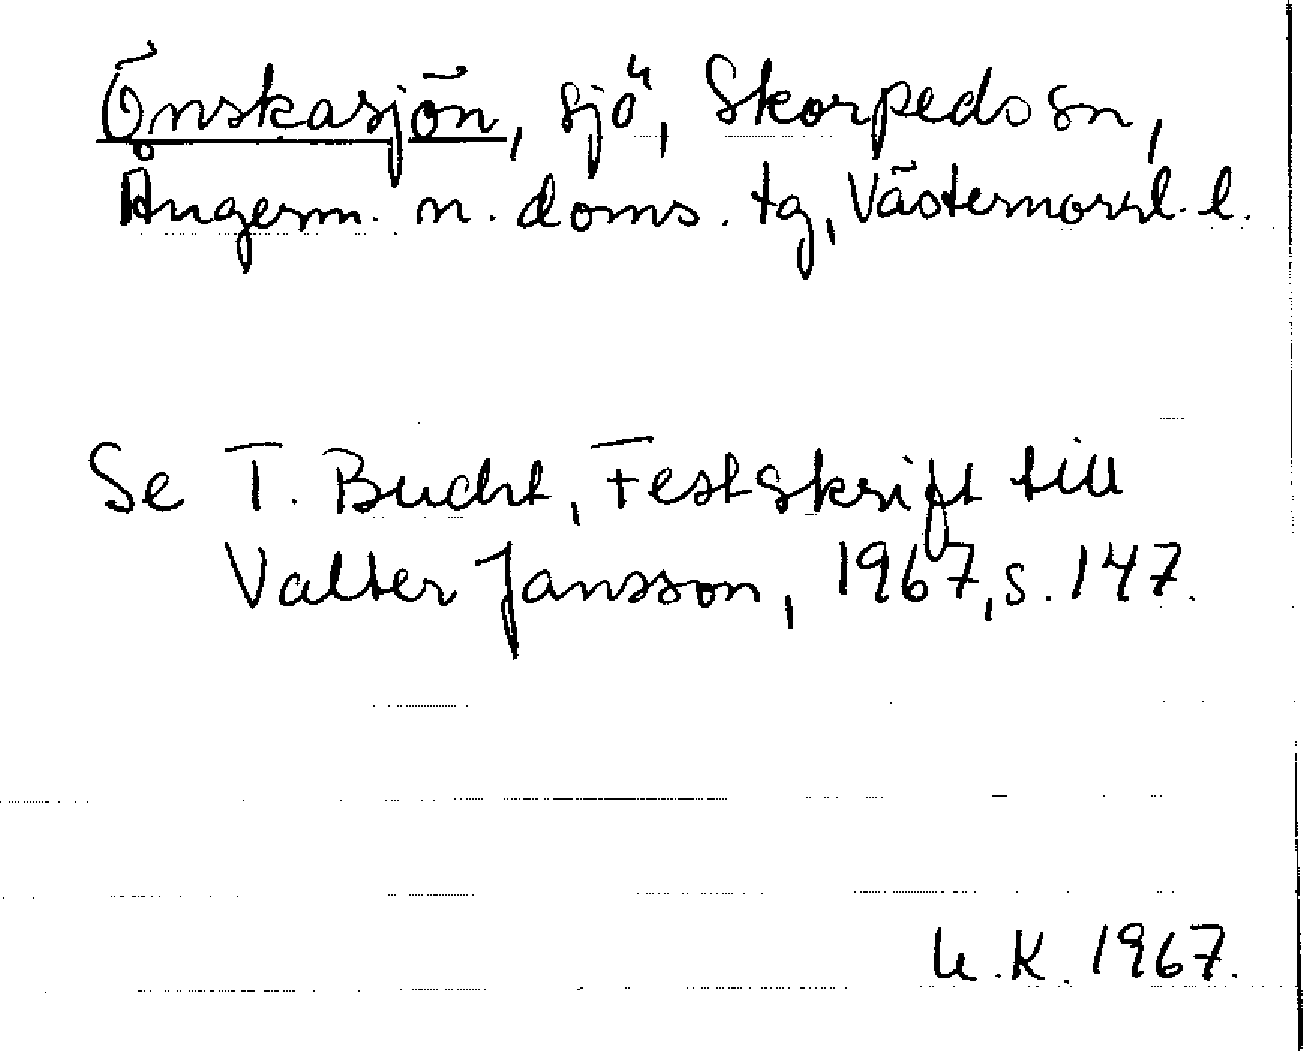 Önskasjön, sjö, Skorpeds sn,
Ångerm. n. doms. tg, Västernorrl. l.
Se T. Bucht, Festskrift till
Valter Jansson, 1967, s. 147.
U.K. 1967.